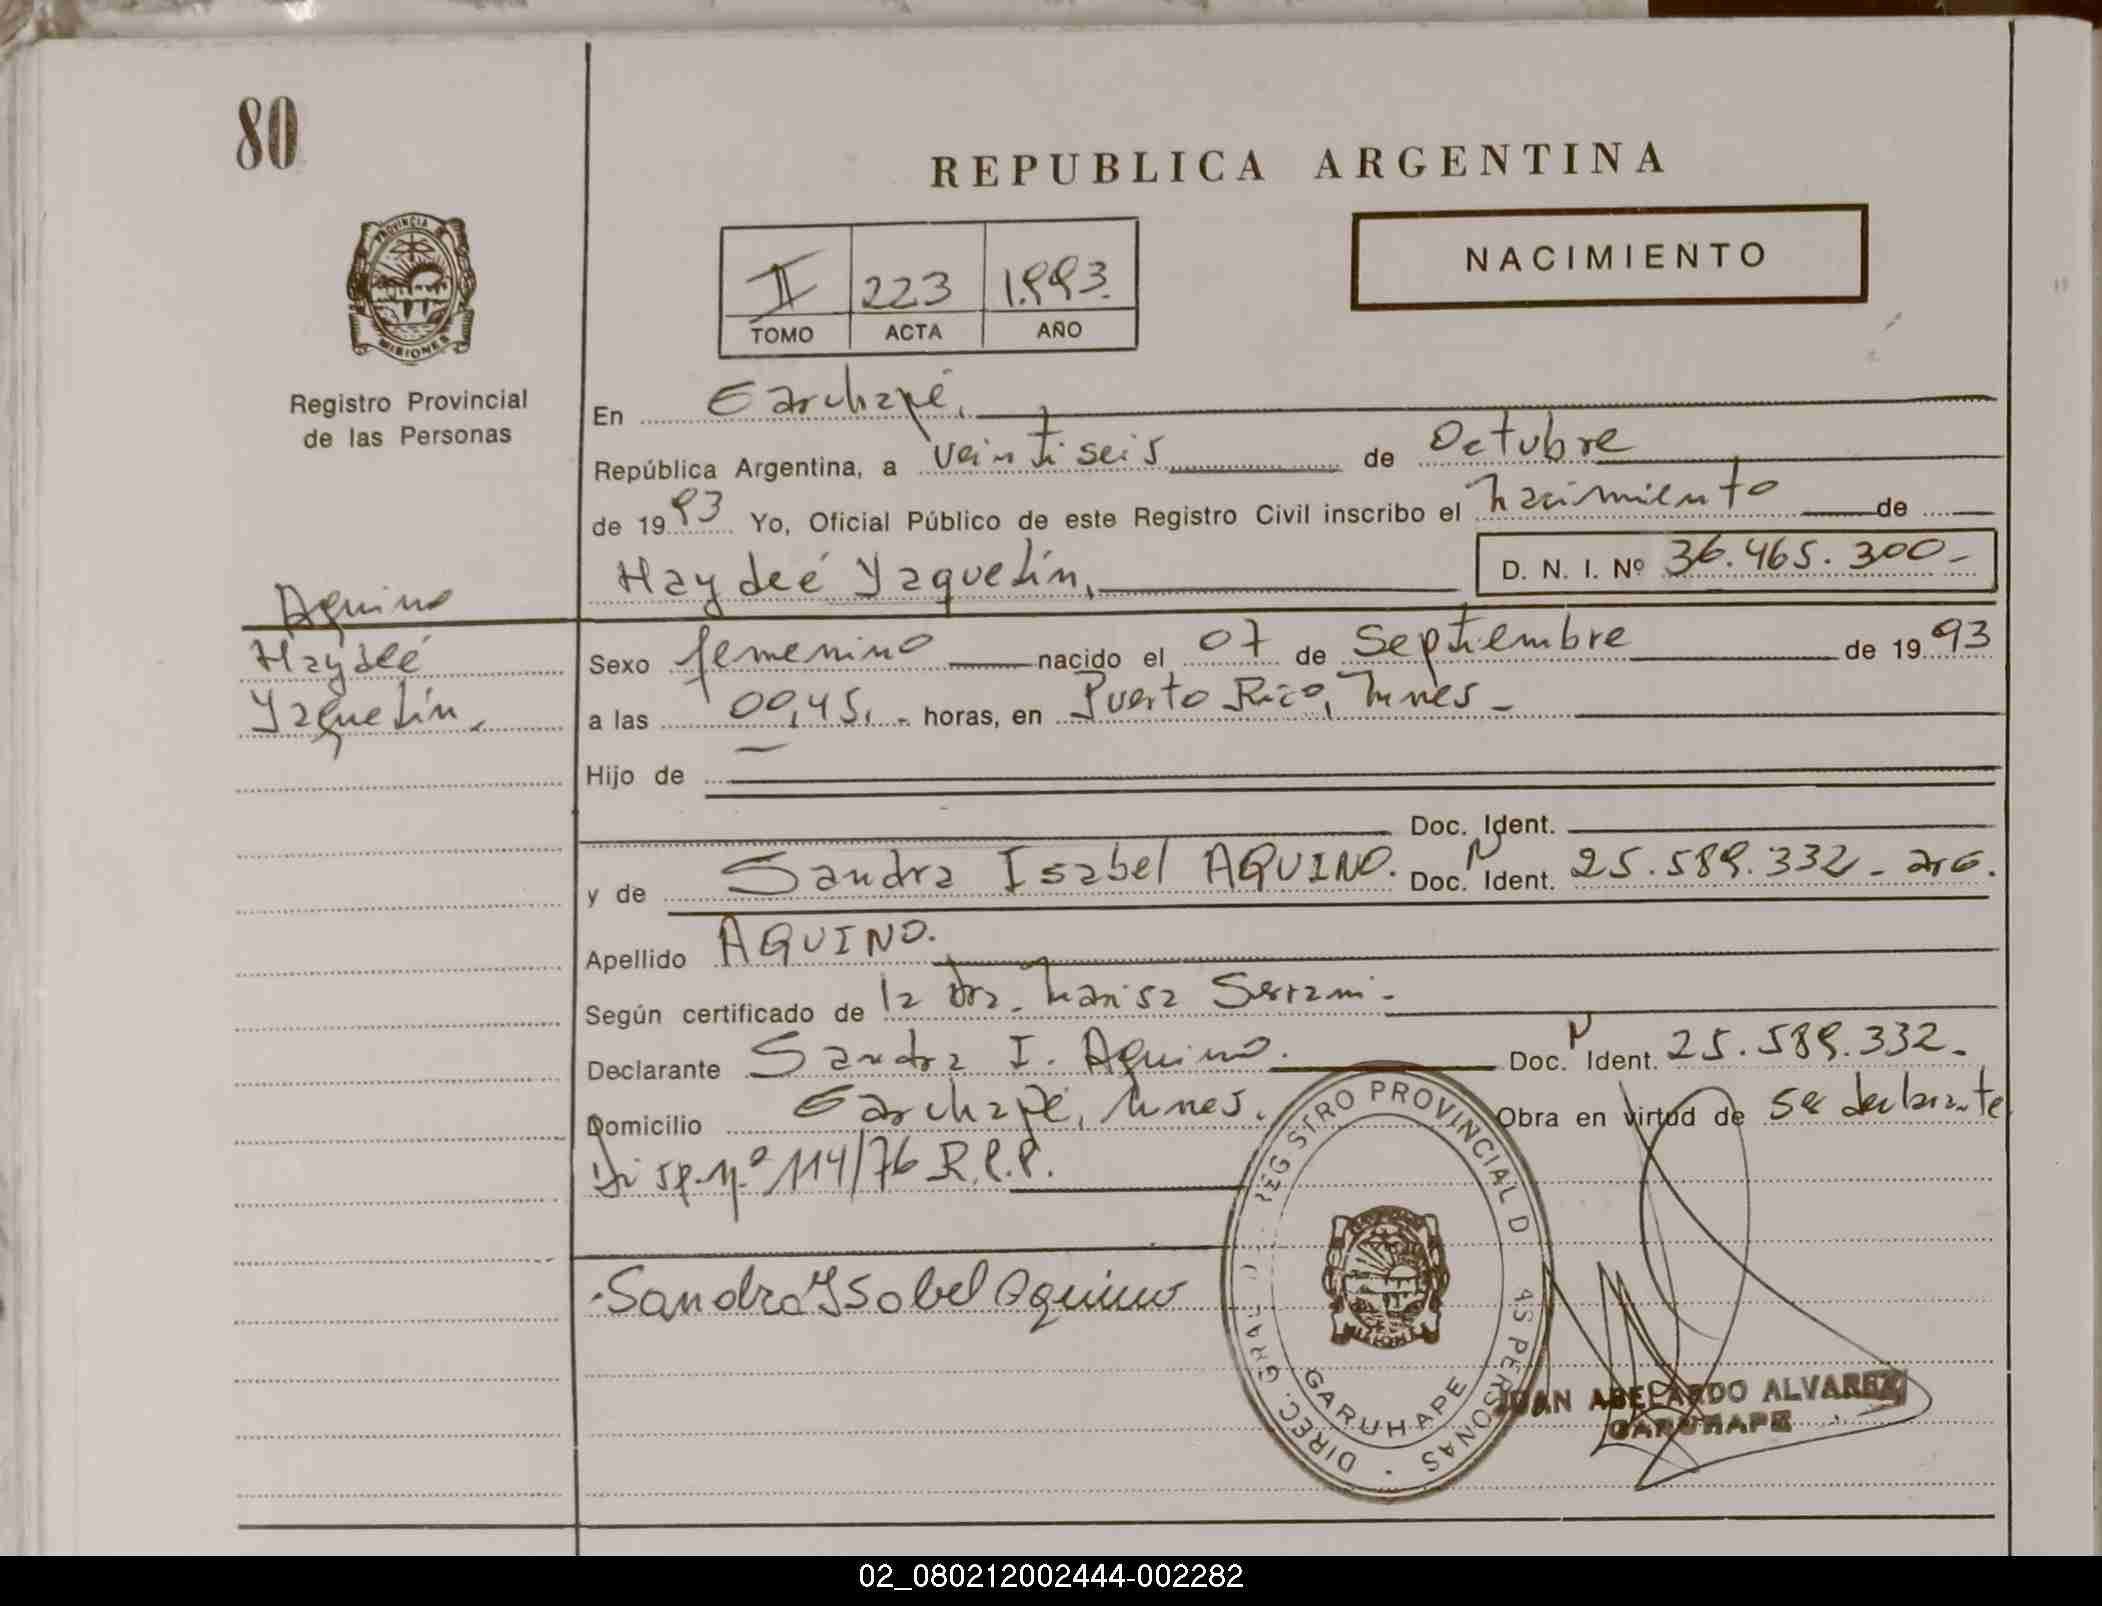 80
REPUBLICA ARGENTINA
PROVINCIA DE
MISIONES
II 223 1.993.
TOMO ACTA AÑO
NACIMIENTO
Registro Provincial
de las Personas
En Garuhapé,
República Argentina, a veintiseis de Octubre
de 1993 Yo, Oficial Público de este Registro Civil inscribo el nacimiento de
Haydeé Yaquelín, D. N. I. Nº 36.465.300-
Aquino
Haydeé
Yaquelín,
Sexo femenino nacido el 07 de Septiembre de 1993
a las 00,45,- horas, en Puerto Rico, Mnes-
Hijo de
Doc. Ident.
y de Sandra Isabel AQUINO. Doc. N Ident. 25.589.332- arg.
Apellido AQUINO.
Según certificado de la dra. Marisa
Declarante Sandra I. Aquino. Doc. N Ident. 25.589.332-
Domicilio Garuhapé, Mnes. Obra en virtud de ser declarante
Disp. Nº 114/76 R.P.P.
Sandra Ysabel Aquino
REGISTRO PROVINCIAL D AS PERSONAS
DIREC. GRAL
GARUHAPE
JUAN ABELARDO ALVAREZ
GARUHAPE
02_080212002444-002282